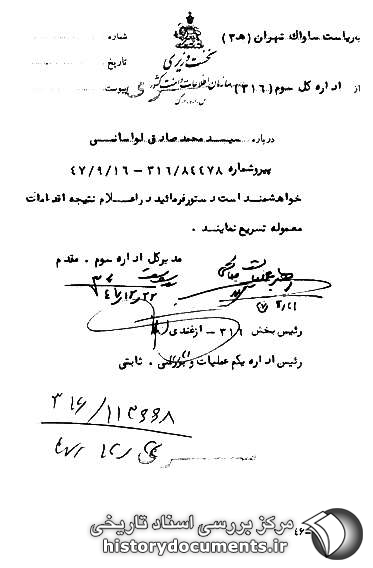 به ریاست ساواک تهران (ه‍ ۳) شماره
نخست وزیری
تاریخ
سازمان اطلاعات و امنیت کشور
از اداره کل سوم (۳۱۶) پیوست
س.ا.و.ا.ک
درباره سید محمد صادق لواسانی
پیرو شماره ۳۱۶/۸۴۴۷۸ - ۴۷/۹/۱۶
خواهشمند است دستور فرمائید در اعلام نتیجه اقدامات
معموله تسریع نمایند.
مدیر کل اداره سوم. مقدم
رئیس بخش ۳۱۶ - ازغندی
رئیس اداره یکم عملیات و بررسی. ثابتی
۳۱۶/۱۱۳۶۶۸
۴۶
مرکز بررسی اسناد تاریخی
historydocuments.ir